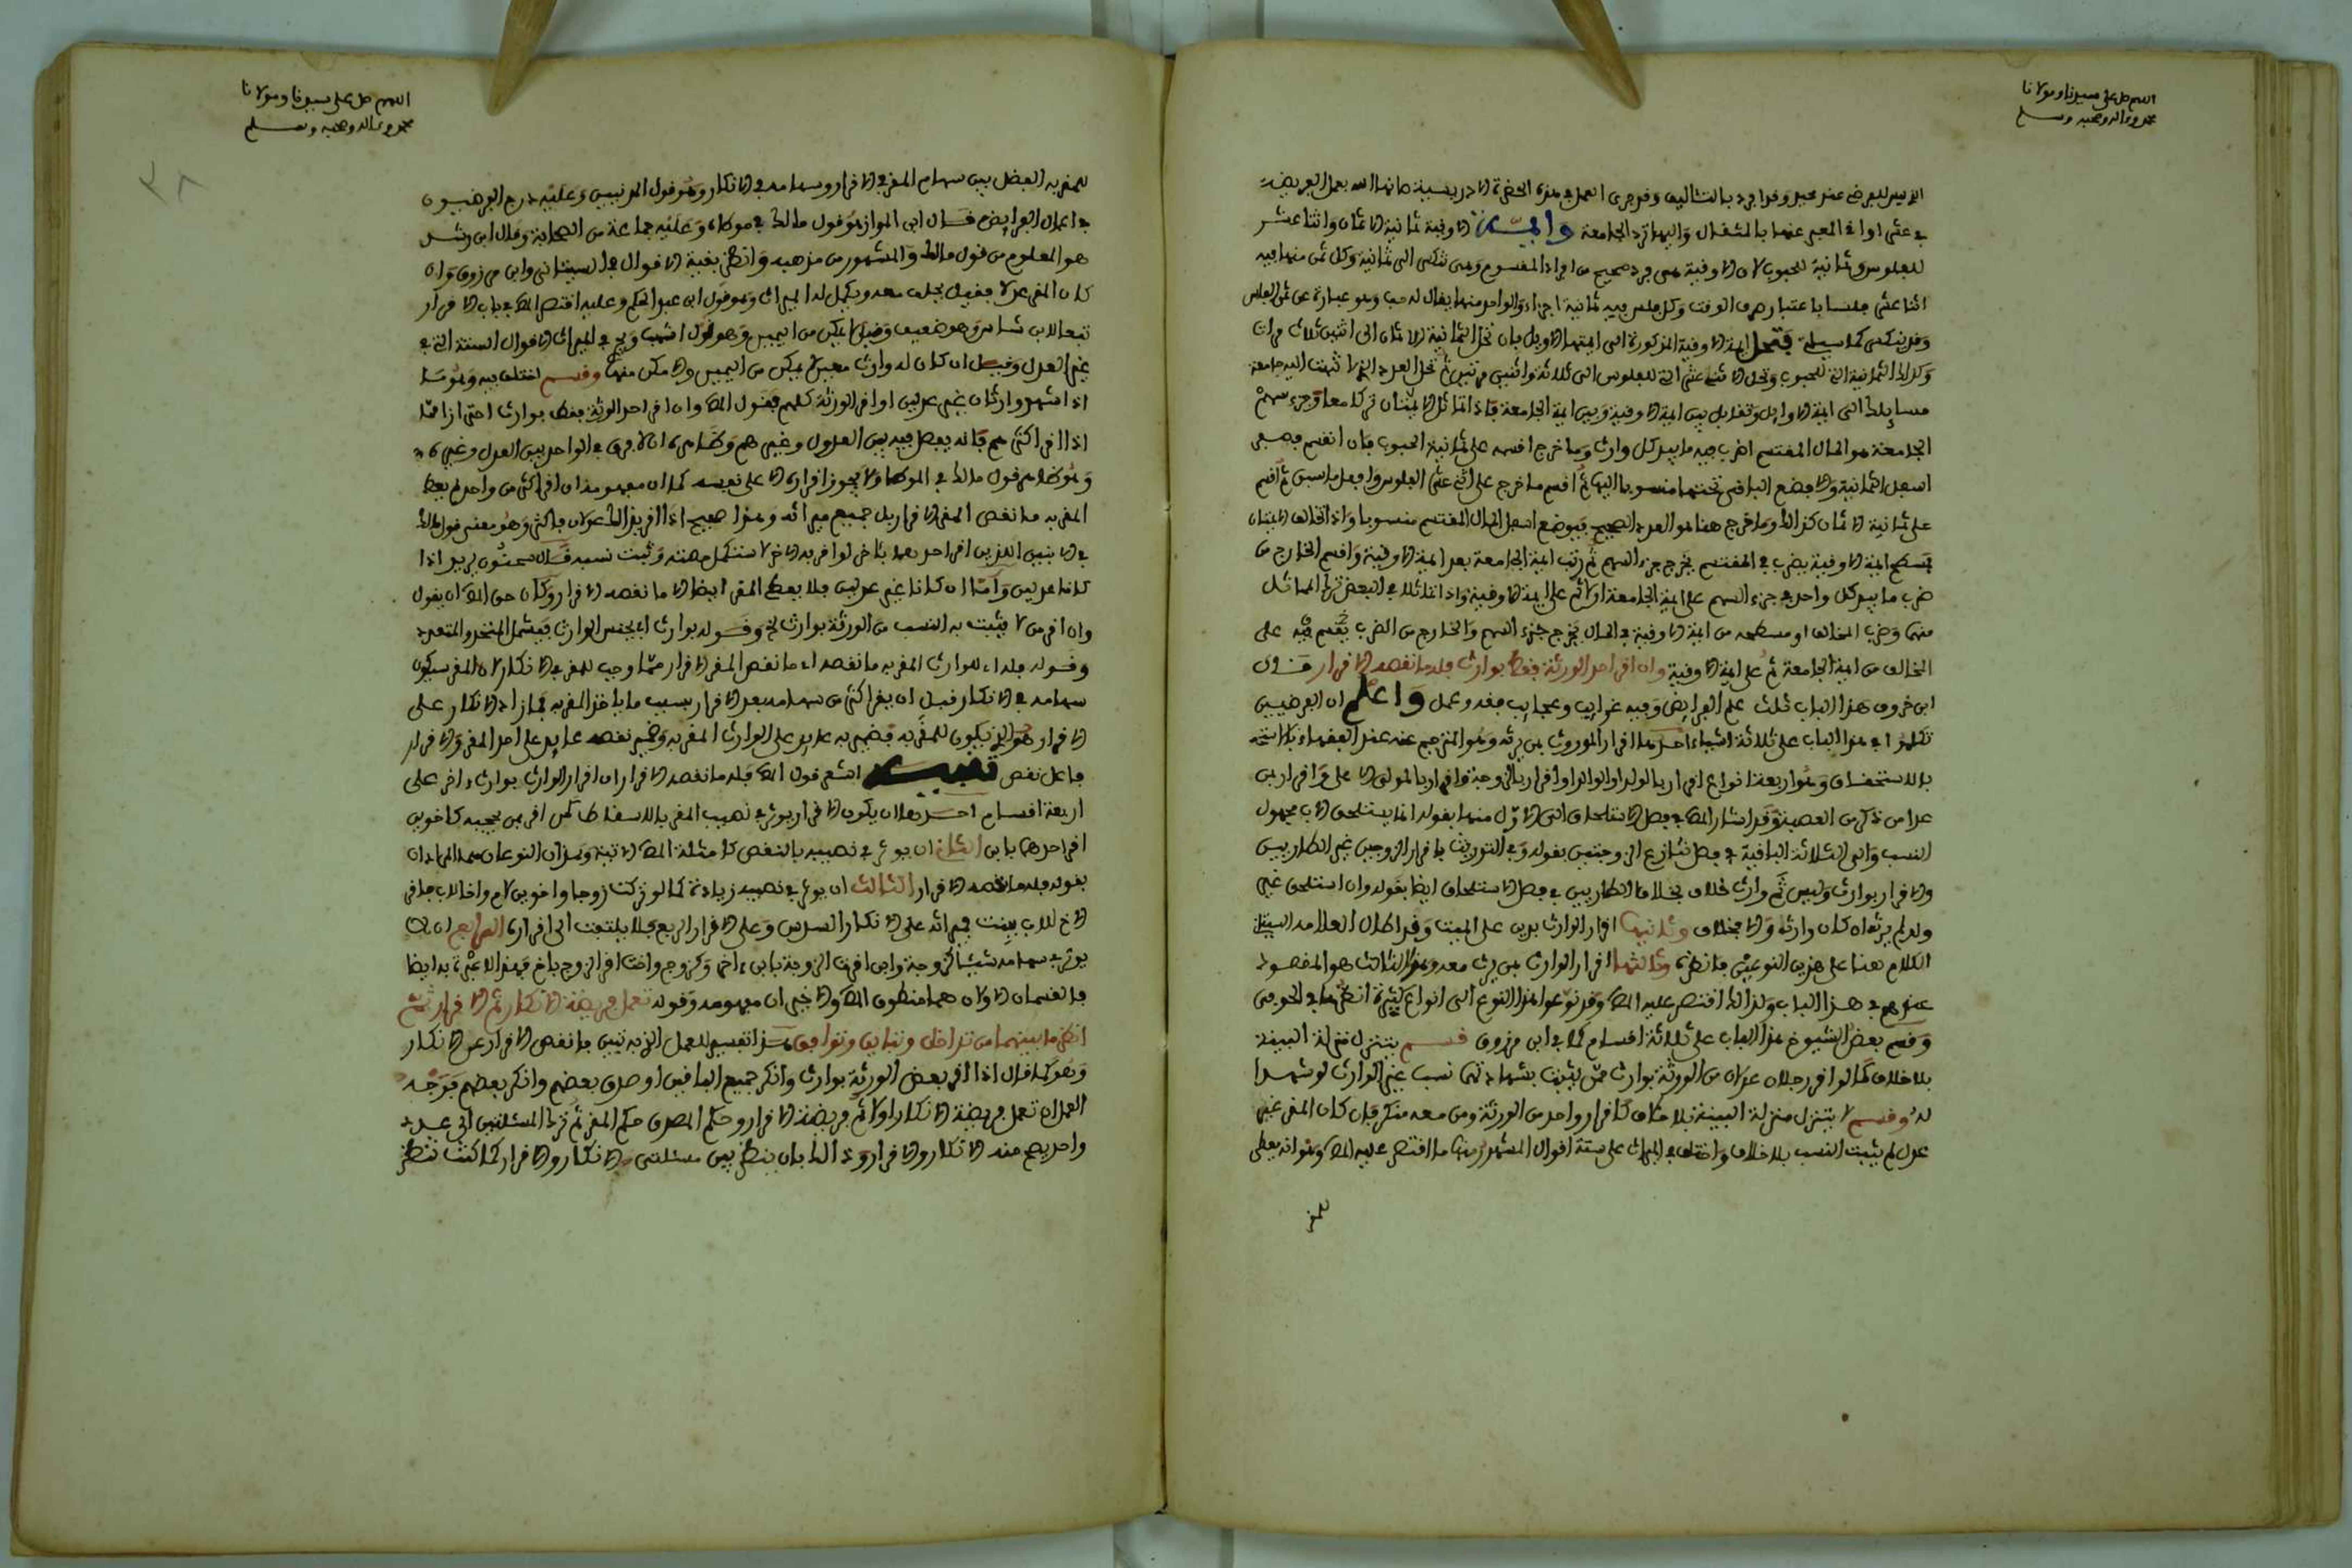 اللهم صل على سيدنا ومولانا
محمد وءاله وصحبه وسلم
الذي ليس للعرض عنه محيد وقد افرد بالتئاليف وقد جرى العمل في هذه الحضرة الادريسية صانها الله بعمل الفريضة
في عشر اواق المعبر عنها بالمثقال واليها ترد الجامعة والاوقية ثمانية الاثمان واثنا عشر
للفلوس وثمانية للحبوب لان الاوقية هي فرد صحيح من افراد المقسوم وهي تنكسر الى ثمانية وكل ثمن منها فيه
اثنا عشر فلسا باعتبار صرف الوقت وكل فلس فيه ثمانية اجزاء والواحد منها يقال له حب وهو عبارة عن ثمن الفلس
وقد ينكسر كما سيأتي فتحل ايمة الاوقية المذكورة الى ايمتها الاوايل بان تحل الثمانية للاثمان الى اثنين ثلاث مرات
وكذا الثمانية التي للحبوب وتحل الاثنا عشر التي للفلوس الى ثلاثة واثنين مرتين ثم تحل العدد الذي انتهت اليه جامعة
مسايلك الى ايمته الاوايل وتقابل بين ايمة الاوقية وبين ايمة الجامعة فاذا تماثل الامتنان تركا معا وجزء سهم
الجامعة هو المال المقتسم اضرب فيه ما بيد كل وارث وما خرج اقسمه على ثمانية الحبوب فان انقسم فضع
اسفل الثمانية والا فضع الباقي تحتها منسوبا اليها ثم اقسم ما خرج على اثني عشر الفلوس وافعل ما سبق ثم اقسم
على ثمانية الاثمان كذلك وما خرج هنا هو العدد الصحيح فيوضع اسفل المال المقتسم منسوبا واذا تخالف الامتنان
فسطح ايمة الاوقية يضرب في المقتسم يخرج جزء السهم ثم رتب ايمة الجامعة بعد ايمة الاوقية واقسم الخارج من
ضرب ما بيد كل واحد في جزء السهم على ايمة الجامعة اولا ثم على ايمة الاوقية واذا تماثلا في البعض ترك المماثل
منها وضرب المخالف او مسطحه من ايمة الاوقية في المال يخرج جزء السهم والخارج من الضرب يقسم فيه على
المخالف من ايمة الجامعة ثم على ايمة الاوقية وان اقر احد الورثة فقط بوارث فله ما نقصه الاقرار قال
ابن خروف هذا الباب ثلث علم الفرايض وفيه غرايب وعجايب فقه وعمل واعلم ان الفرضيين
تكلموا في هذا الباب على ثلاثة اشياء احدها اقرار الموروث بمن يرثه وهو المترجم عنه عند الفقهاء
بالاستحقاق وهو اربعة انواع اقرار بالولد او الوالد او اقرار بالزوجة واقرار بالمولى الاعلى واقرار بمن
عدا من ذكر من العصبة وقد اشار المص في فصل الاستلحاق الى الاول منها بقوله انما يستلحق الاب مجهول
النسب والى الثلاثة الباقية في فصل تنازع الزوجين بقوله وفي التوريث باقرار الزوجين غير الطاريين
والاقرار بوارث وليس ثم وارث خلاف بخلاف الطاريين في فصل الاستلحاق ايضا بقوله وان استلحق غير
ولد لم يرثه ان كان وارث والا فخلاف وثانيها اقرار الوارث بدين على الميت وقد اطال العلامة السيتاني
الكلام هنا على هذين النوعين فانظره وثالثها اقرار الوارث بمن يرث معه وهذا الثالث هو المقصود
عندهم في هذا الباب ولذلك اقتصر عليه المص وقد نوعوا هذا النوع الى انواع كثيرة انظرها في الحوفي
وقسم بعض الشيوخ هذا الباب على ثلاثة اقسام كما في ابن مرزوق قسم يتنزل منزلة البينة
بلا خلاف كما لو اقر رجلان عدلان من الورثة بوارث ممن يثبت بشهادتهما نسب غير الوارث لو شهدا
له وقسم لا يتنزل منزلة البينة بلا خلاف كاقرار واحد من الورثة ومن معه منكر فان كان المقر غير
عدل لم يثبت النسب بلا خلاف واختلف في الميراث على ستة اقوال المشهور منها ما اقتصر عليه المص وهو انه يعطى
للمقر
اللهم صل على سيدنا ومولانا
محمد وءاله وصحبه وسلم
٣٨
للمقر به الفضل بين سهام المقر في الاقرار وسهامه في الانكار وهو قول المدنيين وعليه درج الفرضيون
في اعمال الفرايض قال ابن المواز هو قول مالك في موطاه وعليه جماعة من الصحابة وقال ابن رشد
هو المعلوم من قول مالك والمشهور من مذهبه وانظر بقية الاقوال في السيتاني وابن مرزوق وان
كان المقر عدلا فقيل يحلف معه ويكمل له الميراث وهو قول ابن عبد الحكم وعليه اقتصر المص في باب الاقرار
تبعا لابن شاس وهو ضعيف وقيل لا يمكن من اليمين وهو قول اشهب ويجري في الميراث الاقوال الستة التي في
غير العدل وقيل ان كان له وارث معين لم يمكن من اليمين والا مكن منها وقسم اختلف فيه وهو ما
اذا شهد وارثان غير عدلين او اقر الورثة كلهم فقول المص وان اقر احد الورثة فقط بوارث احترازا مما
اذا اقر اكثر منهم فانه يفصل فيه بين العدول وغيرهم وظاهره ان لا فرق في الواحد بين العدل وغيره
وهو ظاهر قول مالك في الموطا ولا يجوز اقراره الا على نفسه كما ان مفهومه ان اقر اكثر من واحد لم يعط
المقر به ما نقص المقر الاقرار بل جميع ميراثه وهذا صحيح اذا اقر بذلك عدلان فاكثر وهو معنى قول مالك
في الابنين اللذين اقر احدهما باخر لو اقر به الاخر لاستكمل حصته وثبت نسبه قال سحنون يريد اذا
كانا عدلين واما ان كانا غير عدلين فلا يعطى المقر ايضا الا ما نقصه الاقرار وكان حق المص ان يقول
وان اقر من لا يثبت به النسب من الورثة بوارث الخ وقوله بوارث اي بجنس الوارث فيشمل المتحد والمتعدد
وقوله فله اي للوارث المقر به ما نقصه اي ما نقص المقر الاقرار مما وجب للمقر في الانكار لان المقر سيكون
سهامه في الانكار قبل ان يقر اكثر من سهامه بعد الاقرار بسبب ما ياخذ المقر به فما زاد الانكار على
الاقرار هو الذي يكون للمقر به فضمير به عايد على الوارث المقر به وضمير نقصه عايد على احد المقر والاقرار
فاعل نقص تنبيه اشعر قول المص فله ما نقصه الاقرار ان اقرار الوارث بوارث ءاخر على
اربعة اقسام احدها ان يكون الاقرار يوثر في نصيب المقر بالاسقاط كمن اقر بمن يحجبه كاخوين
اقر احدهما بابن الثاني ان يوثر في نصيبه بالنقص كامثلة المص الاتية وهذان النوعان هما المرادان
بقوله فله ما نقصه الاقرار الثالث ان يوثر في نصيبه زيادة كما لو تركت زوجا واخوين لام واخا لاب فاقر
الاخ للاب ببنت فميراثه على الانكار السدس وعلى الاقرار الربع فلا يلتفت الى اقراره الرابع ان لا
يوثر في سهامه شيئا كزوجة وابن اقرت الزوجة بابن ءاخر وكزوج واخت اقر الزوج باخ فهذا لا عبرة به ايضا
فالقسمان الاولان هما منطوق المص والاخيران مفهومه وقوله تعمل فريضة الانكار ثم الاقرار ثم
انظر ما بينهما من تداخل وتباين وتوافق هذا تفسير للعمل الذي به تبين ما نقص الاقرار عن الانكار
وهو كما قال اذا اقر بعض الورثة بوارث وانكر جميع الباقين او صدق بعضهم وانكر بعضهم فوجه
العمل ان تعمل فريضة الانكار اولا ثم فريضة الاقرار وحكم المصدق حكم المقر ثم ترد المسئلتين الى عدد
واحد يصح منه الانكار والاقرار وذلك بان ينظر بين مسئلتي الانكار والاقرار كما كنت تنظر